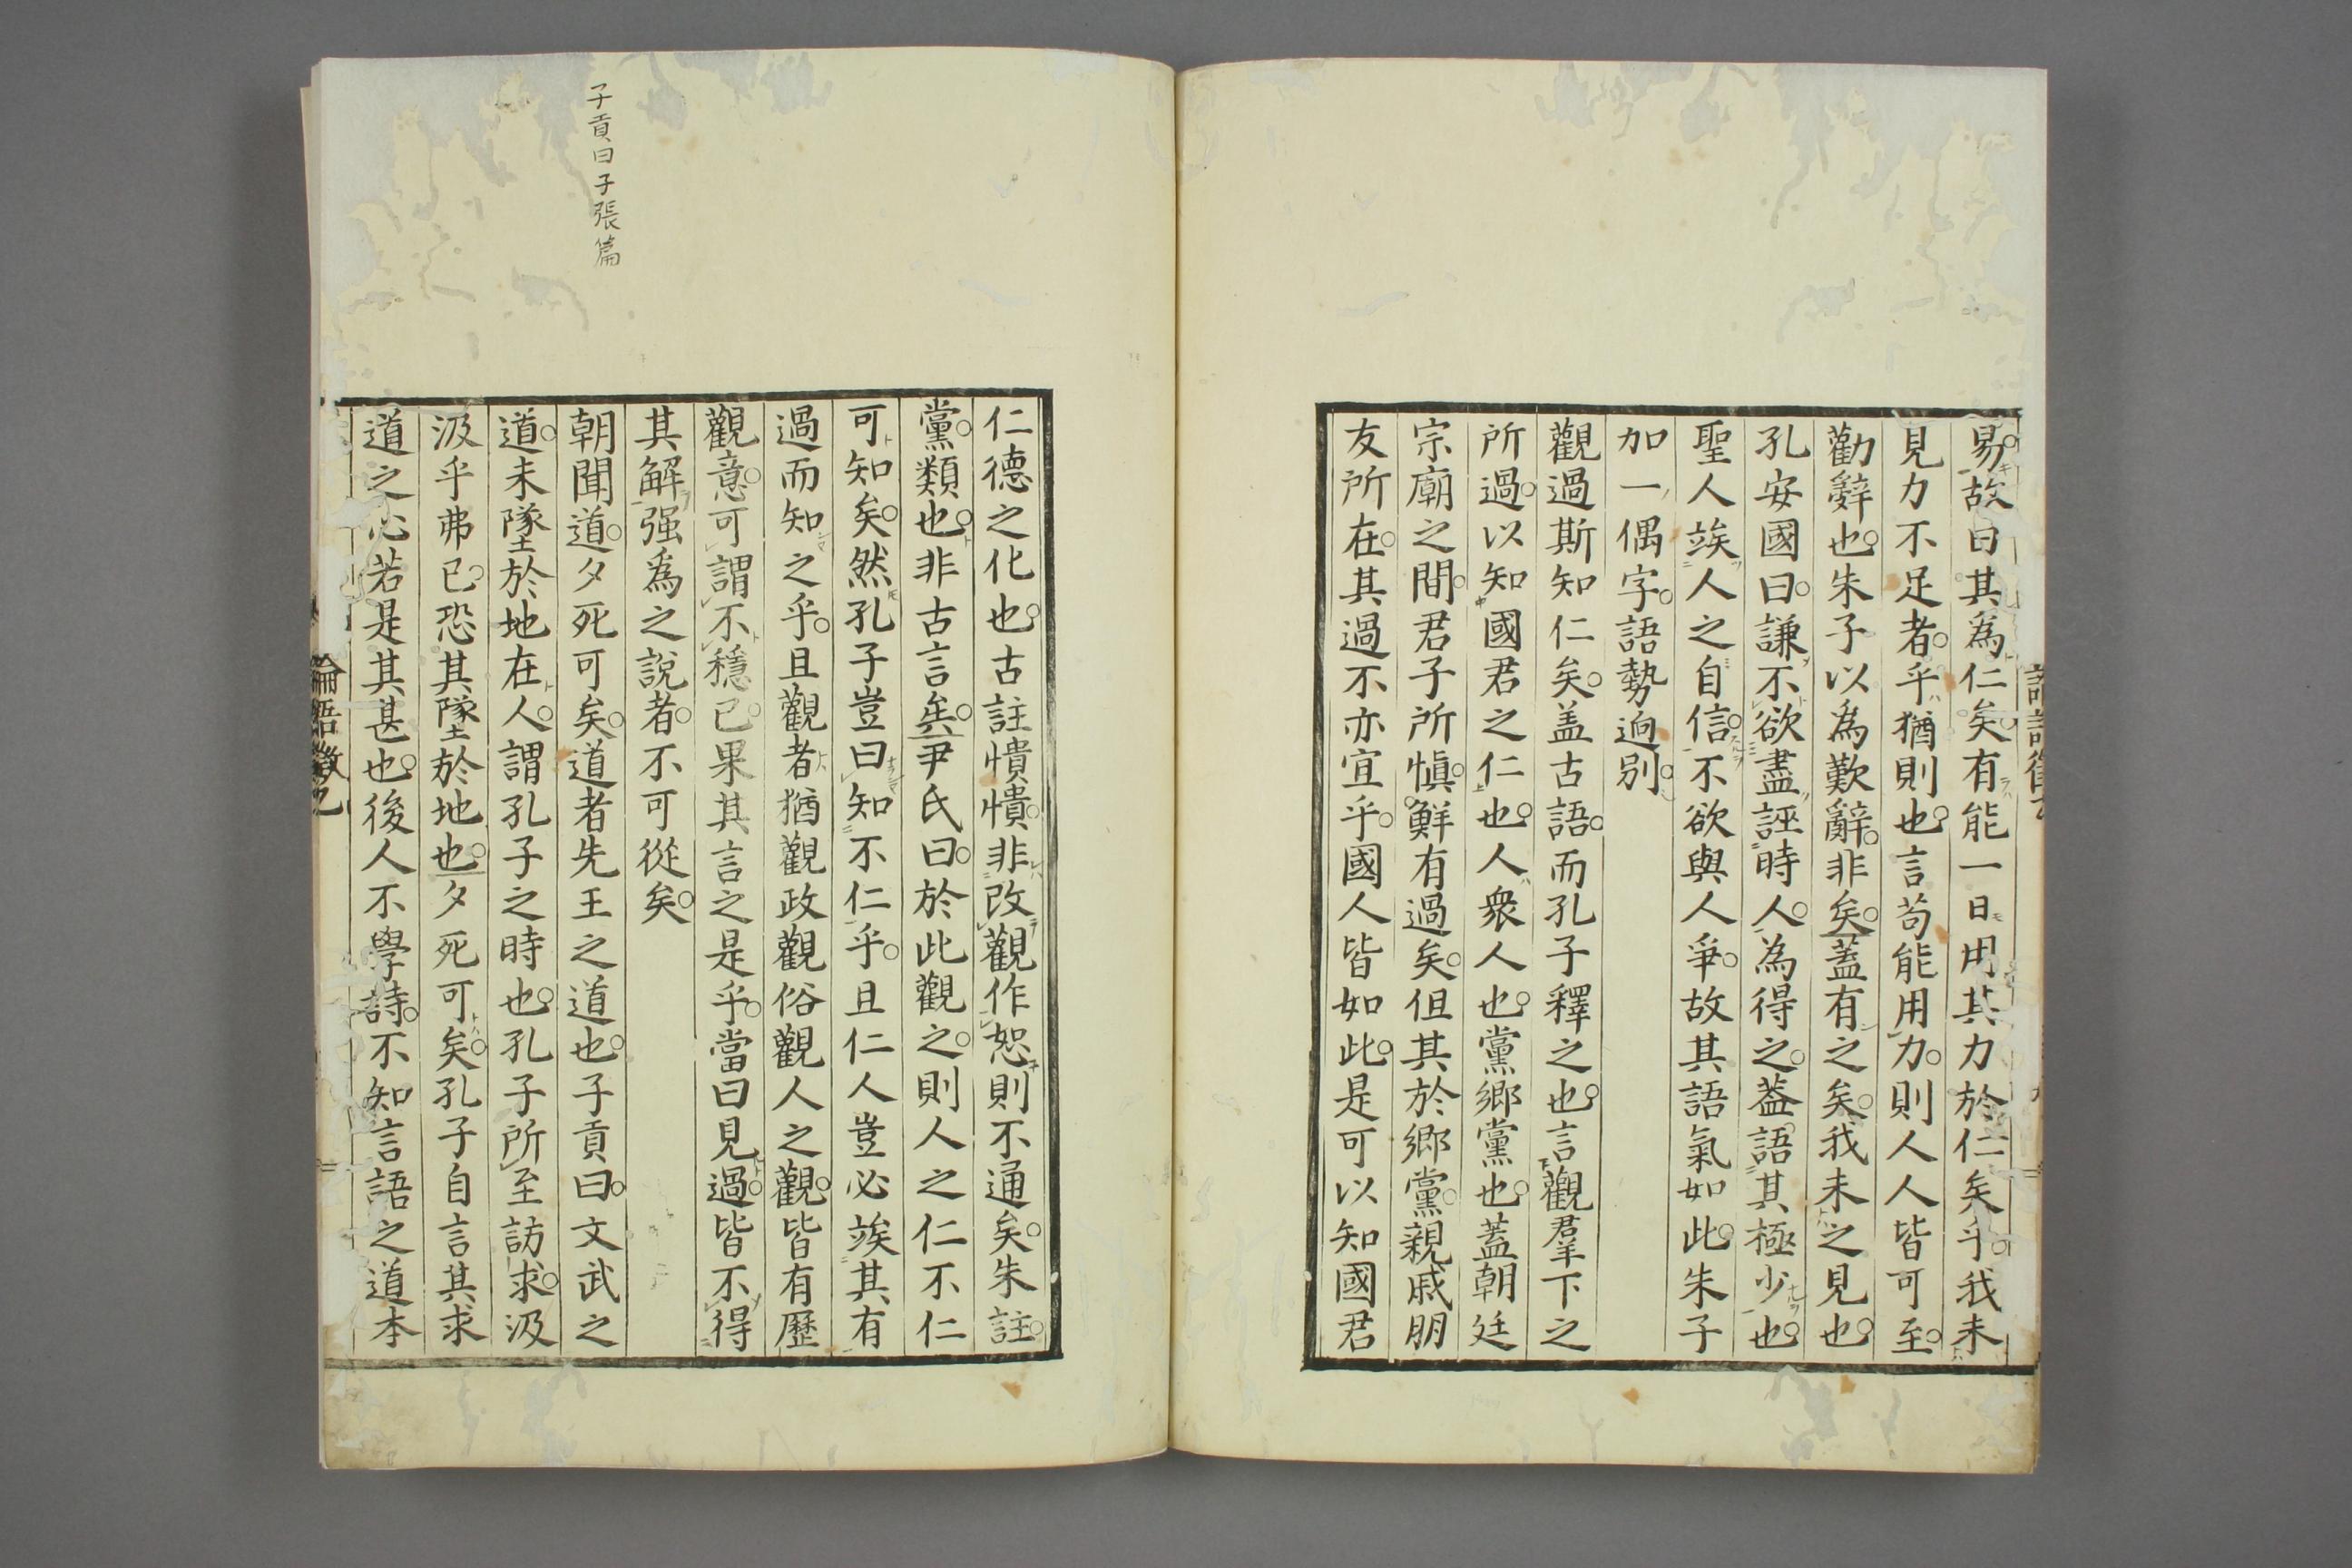 易故曰其為仁矣有能一日用其力於仁矣乎我未
見力不足者乎猶則也言苟能用力則人人皆可至
勸辭也朱子以為歎辭非矣蓋有之矣我未之見也
孔安國曰謙不欲盡誣時人為得之蓋語其極少也
聖人竢人之自信不欲與人爭故其語氣如此朱子
加一偶字語勢逈别
觀過斯知仁矣盖古語而孔子釋之也言觀羣下之
所過以知國君之仁也人衆人也黨鄉黨也蓋朝廷
宗廟之間君子所愼鮮有過矣但其於鄉黨親戚朋
友所在其過不亦宜乎國人皆如此是可以知國君
仁德之化也古註憒憒非改觀作恕則不通矣朱註
黨類也非古言矣尹氏曰於此觀之則人之仁不仁
可知矣然孔子豈曰知不仁乎且仁人豈必竢其有
過而知之乎且觀者猶觀政觀俗觀人之觀皆有歷
觀意可謂不穩已果其言之是乎當曰見過皆不得
其解强為之說者不可從矣
子貢曰子張篇
朝聞道夕死可矣道者先王之道也子貢曰文武之
道未墜於地在人謂孔子之時也孔子所至訪求汲
汲乎弗已恐其墜於地也夕死可矣孔子自言其求
道之心若是其甚也後人不學詩不知言語之道本
論語徵乙